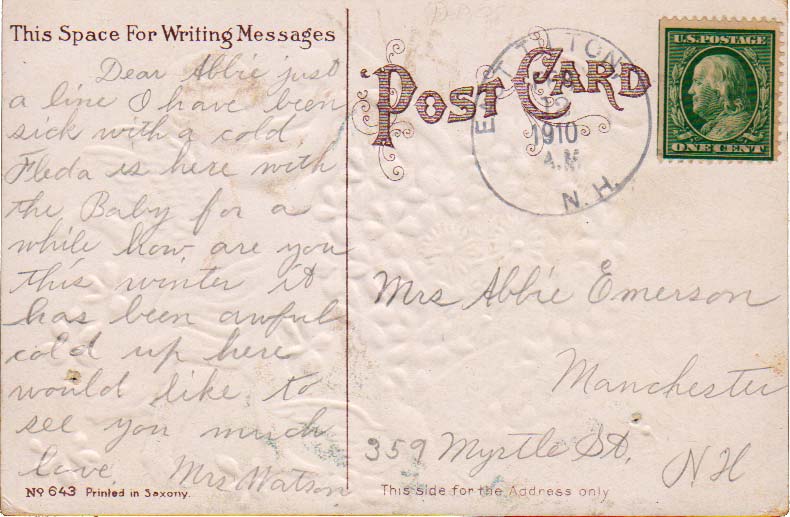 This Space For Writing Messages
Dear Abbie just
a line I have been
sick with a cold
Fleda is here with
the Baby for a
while how are you
this winter it
has been awful
cold up here
would like to
see you much
love. Mrs Watson
No 643 Printed in Saxony.
POST CARD
EAST TILTON
12
1910
A.M.
N.H.
U.S. POSTAGE
ONE CENT
Mrs Abbie Emerson
Manchester
359 Myrtle St.
NH
This side for the Address only